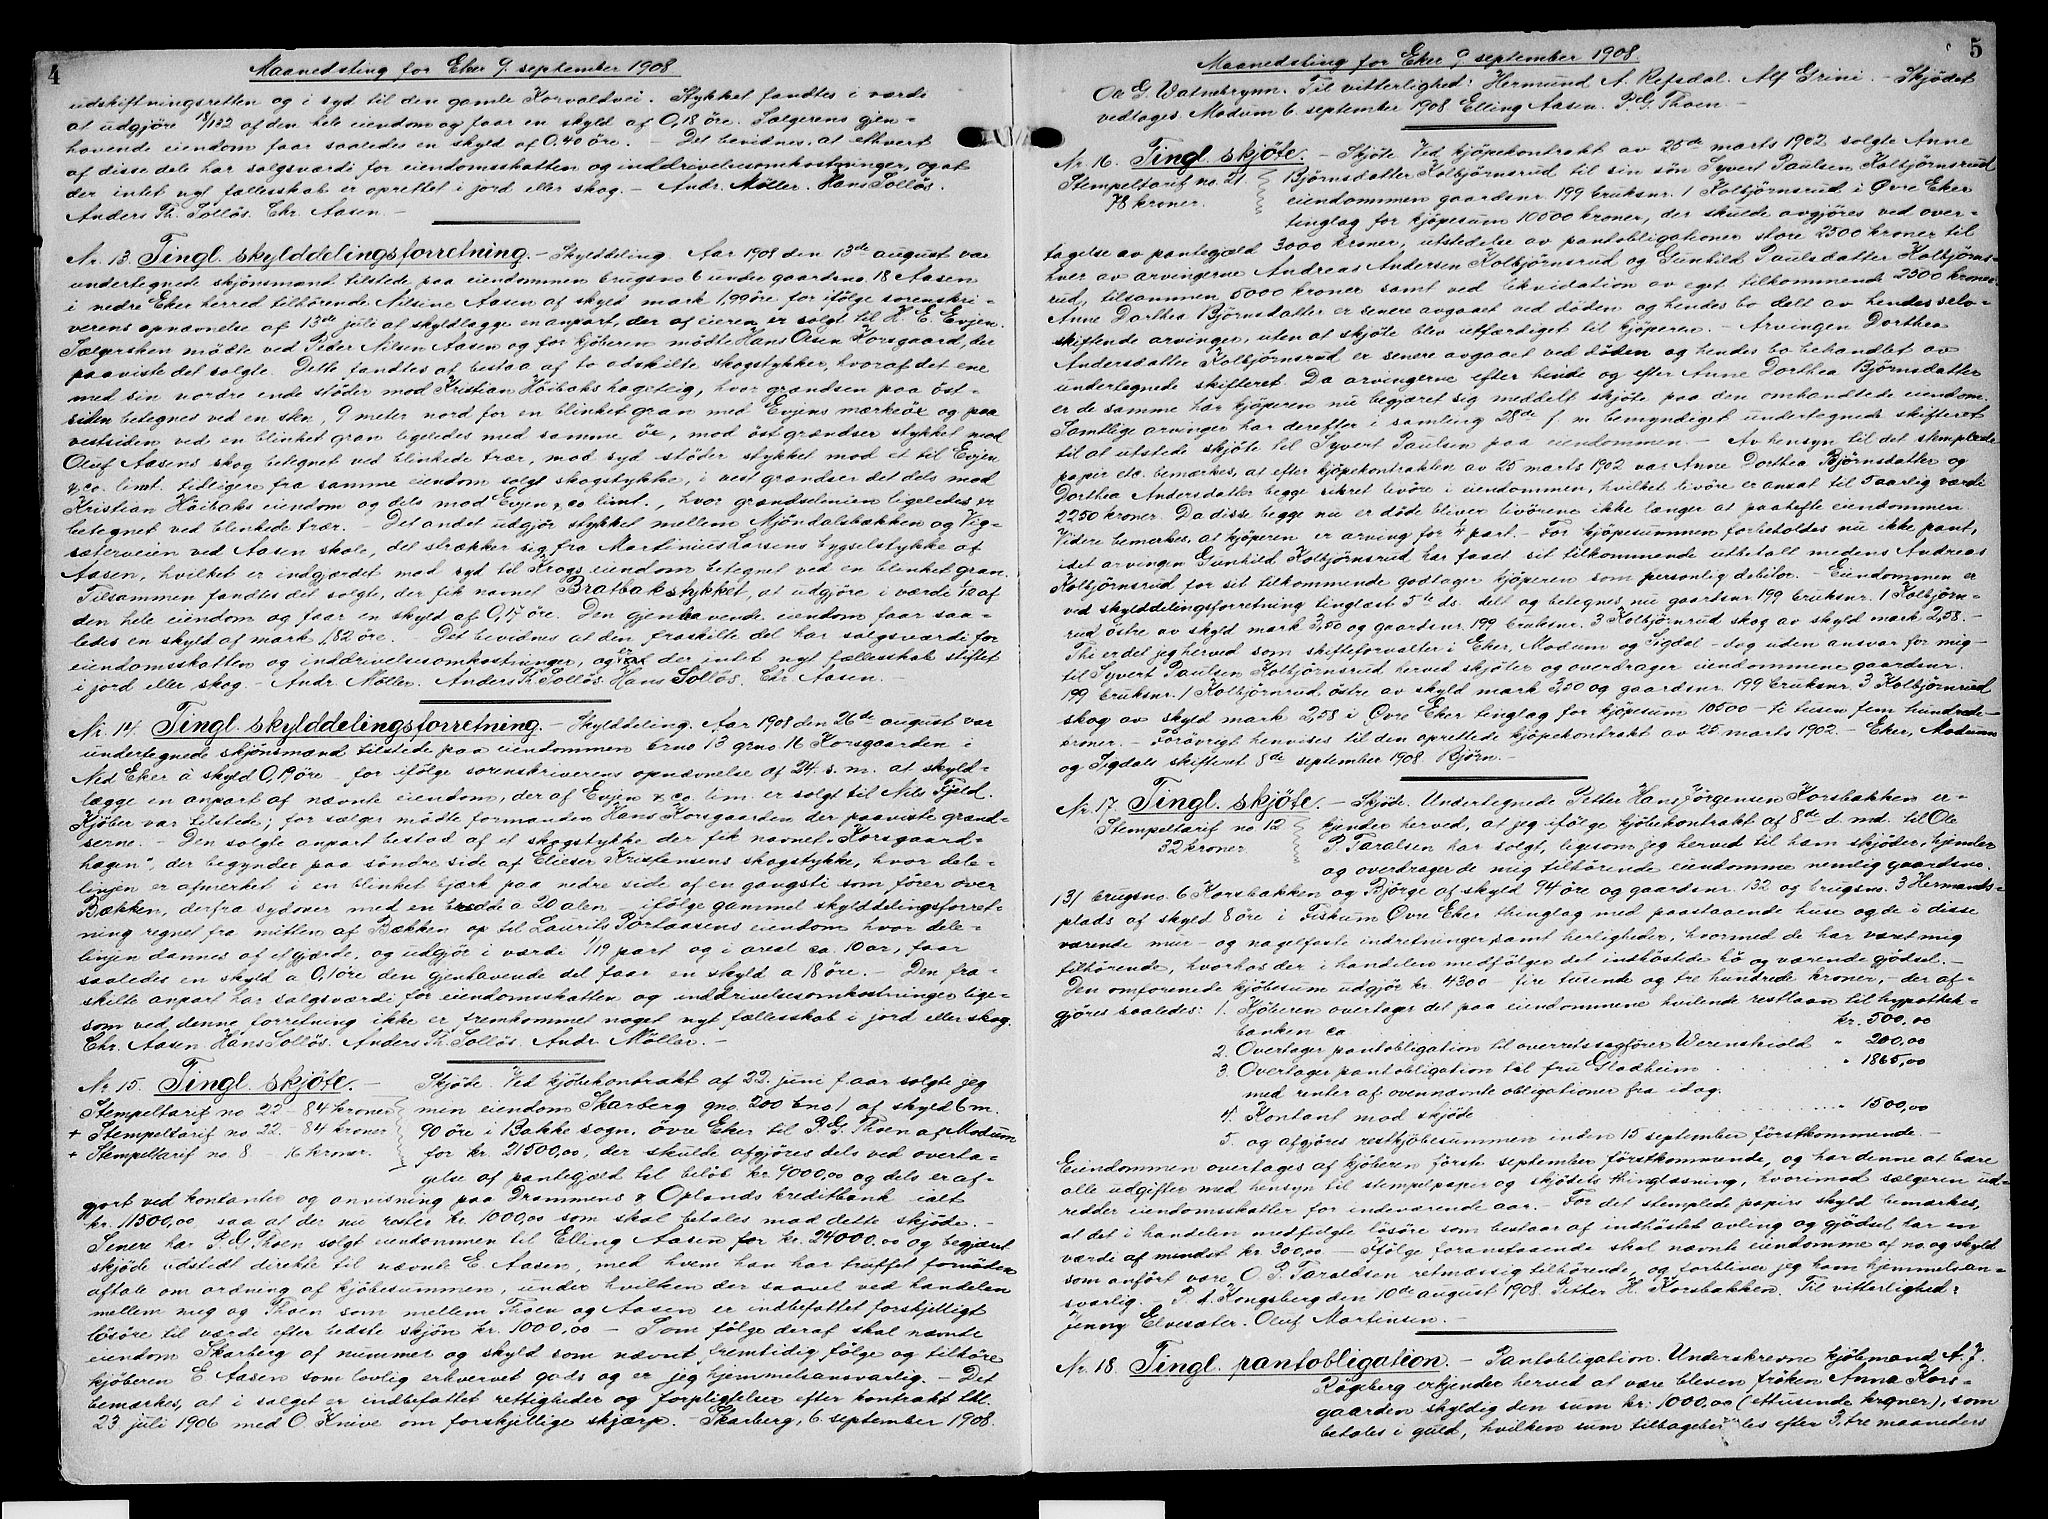 4
Maanedsting for Eker 9. september 1908.
udskiftningsretten og i syd til den gamle Korvaldvei. Stykket fandtes i værde
at udgjøre 18/132 af den hele eiendom og faar en skyld af 0,18 öre. Sælgerens gjen-
havende eiendom faar saaledes en skyld af 0.40 öre. – Det bevidnes, at ethvert
af disse dele har salgsværdi for eiendomsskatten og inddrivelsesomkostninger, og at
der intet nyt fællesskab er oprettet i jord eller skog. – Andr. Möller. Hans Solløs.
Anders Th. Solløs. Chr. Aasen. –
Nr. 13. Tingl. skylddelingsforretning. – Skylddeling. Aar 1908 den 13de august var
undertegnede skjönsmænd tilstede paa eiendommen brugsno 6 under gaardsno. 18 Aasen
i nedre Eker herred tilhörende Nilsine Aasen af skyld mark 1,99 öre for ifölge sorenskri-
verens opnævnelse af 13de juli af skyldlægge en anpart, der af eieren er solgt til H. E. Evjen.
Sælgersken mödte ved Peder Nilsen Aasen og for kjöberen mödte Hans Olsen Korsgaard, der
paaviste det solgte. Dette fandtes at bestaa af to adskilte skogstykker, hvoraf det ene
med sin nordre ende støder mod Kristian Höibaks hageteig, hvor grændsen paa öst-
siden betegnes ved en sten, 9 meter nord for en blinket gran med Evjens mærkeöx og paa
vestsiden ved en blinket gran ligeledes med samme öx, mod öst grændser stykket mod
Oluf Aasens skog betegnet ved blinkede trær, mod syd støder stykket mod et til Evjen
& co. limt. tidligere fra samme eiendom solgt skogstykke, i vest grændser det dels mod
Kristian Höibaks eiendom og dels mod Evjen & co limt., hvor grændselinien ligeledes er
betegnet ved blinkede trær. – Det andet udgjör stykket mellem Mjöndalsbakken og Vig-
sæterveien ved Aasen skole, det strækker sig fra Martinius Larsens bygselstykke af
Aasen, hvilket er indgjærdet mod syd til Krogs eiendom betegnet ved en blinket gran.
Tilsammen fandtes det solgte, der fik navnet Bratbakstykket, at udgjöre i værde 1/12 af
den hele eiendom og faar en skyld af 0,17 öre. Den gjenhavende eiendom faar saa-
ledes en skyld af mark 1,82 öre. Det bevidnes at den fraskilte del har salgsværdi for
eiendomsskatten og inddrivelsesomkostninger, og at der intet nyt fællesskab stiftet
i jord eller skog. – Andr. Möller. Anders Th. Solløs. Hans Solløs. Chr. Aasen. –
Nr. 14. Tingl. skylddelingsforretning. – Skylddeling. Aar 1908 den 26de august var
undertegnede skjönsmænd tilstede paa eiendommen brno 13 grno. 16 Korsgaarden i
Ned. Eker à skyld 0,19 öre – for ifölge sorenskriverens opnævnelse af 24. s. m. at skyld-
lægge en anpart af nævnte eiendom, der af Evjen & co. lim. er solgt til Nils Fjeld.
Kjöber var tilstede; for sælger mödte formanden Hans Korsgaarden der paaviste grænd-
serne. – Den solgte anpart bestod af et skogstykke der fik navnet „Korsgaard-
hagen", der begynder paa söndre side af Elieser Kristensens skogstykke, hvor dele-
linjen er afmerket i en blinket bjærk paa nedre side af en gangsti som förer over
Bækken, derfra sydover med en bredde a 20 alen – ifölge gammel skylddelingsforret-
ning regnet fra midten af Bækken op til Laurits Portaasens eiendom hvor dele-
linjen dannes af et gjærde, og udgjör i værde 1/19 part og i areal ca 10 ar, faar
saaledes en skyld a 0,1 öre den gjenhavende del faar en skyld a 18 öre. – Den fra-
skilte anpart har salgsværdi for eiendomsskatten og inddrivelsesomkostninger lige-
som ved denne forretning ikke er fremkommet noget nyt fællesskab i jord eller skog.
Chr. Aasen Hans Solløs. Anders Th. Solløs. Andr. Möller. –
Nr. 15. Tingl. skjöte. – Skjöde. Ved kjöbekontrakt af 22. juni f. aar solgte jeg
Stempeltarif no 22 – 84 kroner min eiendom Skarberg gno. 200 bno 1 af skyld 6 m.
+ Stempeltarif no. 22. – 84 kroner 90 öre i Bakke sogn, övre Eker til P. G. Thoen af Modum
+ Stempeltarif no 8 – 16 kroner. for kr. 21500,00, der skulde afgjöres dels ved overta-
gelse af pantegjæld til belöb kr. 9000,00 og dels er af-
gjort ved kontanter og anvisning paa Drammens & Oplands kreditbank ialt
kr. 11500,00, saa at der nu rester kr. 1000,00 som skal betales mod dette skjöde. –
Senere har P. G. Thoen solgt eiendommen til Elling Aasen for kr. 24000.00 og begjæret
skjöde udstedt direkte til nævnte E. Aasen, med hvem han har truffet fornöden
aftale om ordning af kjöbesummen, under hvilken der saavel ved handelen
mellem mig og Thoen som mellem Thoen og Aasen er indbefattet forskjelligt
lösöre til værde efter bedste skjön kr. 1000,00 – Som fölge deraf skal nævnte
eiendom Skarberg af nummer og skyld som nævnt fremtidig fölge og tilhöre
kjöberen E. Aasen som lovlig erhvervet gods og er jeg hjemmelsansvarlig. – Det
bemærkes, at i salget er indbefattet rettigheder og forpligtelser efter kontrakt thl.
23 juli 1906 med O. Knive om forskjellige skjærp. – Skarberg, 6. september 1908.
5
Maanedsting for Eker 9 september 1908.
Ole G. Watnebrynn. Til vitterlighed: Hermund A. Refsdal. Alf Grini. – Skjödet
vedtages Modum 6 september 1908 Elling Aasen. P. G. Thoen. –
Nr. 16. Tingl. skjöte. – Skjöte Ved kjöpekontrakt av 25de marts 1902 solgte Anne
Stempeltarif no. 21. Björnsdatter Kolbjörnsrud til sin sön Syvert Paulsen Kolbjörnsrud
78 kroner. eiendommen gaardsnr. 199 bruksnr. 1 Kolbjörnsrud i Øvre Eker
tinglag for kjöpesum 10000 kroner, der skulde avgjöres ved over-
tagelse av pantegjæld 3000 kroner, utstedelse av pantobligationer store 2500 kroner til
hver av arvingerne Andreas Andersen Kolbjörnsrud og Gunhild Paulsdatter Kolbjörns-
rud, tilsammen 5000 kroner samt ved likvidation av eget tilkommende 2500 kroner.
Anne Dorthea Björnsdatter er senere avgaaet ved döden og hendes bo delt av hendes selv-
skiftende arvinger, uten at skjöte blev utfærdiget til kjöperen. – Arvingen Dorthea
Andersdatter Kolbjörnsrud er senere avgaaet ved döden og hendes bo behandlet av
undertegnede skifteret. Da arvingerne efter hende og efter Anne Dorthea Björnsdatter
er de samme har kjöperen nu begjæret sig meddelt skjöte paa den omhandlede eiendom.
Samtlige arvinger har derefter i samling 28de f. m. bemyndiget undertegnede skifteret
til at utstede skjöte til Syvert Paulsen paa eiendommen. – Av hensyn til det stemplede
papir etc. bemærkes, at efter kjöpekontrakten av 25 marts 1902 var Anne Dorthea Björnsdatter og
Dorthea Andersdatter begge sikret livöre i eiendommen, hvilket livöre er ansat til 5 aarlig værdi
2250 kroner. Da disse begge nu er döde bliver livörene ikke længer at paahefte eiendommen
Videre bemærkes, at kjöperen er arving for 1/4 part. – For kjöpesummen forbeholdes nu ikke pant,
idet arvingen Gunhild Kolbjörnsrud har faaet sit tilkommende utbetalt medens Andreas
Kolbjörnsrud for sit tilkommende godtager kjöperen som personlig debitor. – Eiendommen er
ved skylddelingsforretning tinglæst 5te ds. delt og betegnes nu gaardsnr. 199 bruksnr. 1 Kolbjörn-
rud östre av skyld mark 3,50 og gaardsnr. 199 bruksnr. 3 Kolbjörnrud skog av skyld mark 2,58. –
Thi er det jeg herved som skifteforvalter i Eker, Modum og Sigdal – dog uden ansvar for mig –
til Syvert Paulsen Kolbjörnsrud herved skjöter og overdrager eiendommene gaardsnr.
199 bruksnr. 1 Kolbjörnrud östre av skyld mark 3,50 og gaardsnr. 199 bruksnr. 3 Kolbjörnrud
skog av skyld mark 2,58 i Øvre Eker tinglag for kjöpesum 10500 – ti tusen fem hundrede –
kroner. – Forövrigt henvises til den oprettede kjöpekontrakt av 25 marts 1902. – Eker, Modum
og Sigdals skifteret 8de september 1908. Björn. –
Nr. 17. Tingl. skjöte. – Skjöde. Undertegnede Petter Hans Jörgensen Korsbakken er-
Stempeltarif no 12 kjender herved, at jeg ifölge kjöbekontrakt af 8de d. md. til Ole
32 kroner P. Taralsen har solgt, ligesom jeg herved til ham skjöder, hjemler
og overdrager de mig tilhörende eiendomme nemlig gaardsno.
131 brugsno. 6 Korsbakken og Björge af skyld 94 öre og gaardsnr. 132 og brugsno. 3 Hermands-
plads af skyld 8 öre i Fiskum Övre Eker thinglag med paastaaende huse og de i disse
værende mur- og nagelfaste indretninger samt herligheder, hvormed de har været mig
tilhörende, hvorhos der i handelen medfölger det indhöstede hö og værende gjödsel. –
Den omforenede kjöbesum udgjör kr 4300 – fire tusende og tre hundrede kroner, – der af-
gjöres saaledes: 1. Kjöberen overtager det paa eiendommene hvilende restlaan til hypothek-
banken ca kr. 500,00
2. Overtager pantobligation til overretssagförer Werenskiold " 200,00
3. Overtager pantobligation til fru Gladheim " 1865,00
med renter af ovennævnte obligationer fra idag.
4. Kontant mod skjöde " 1500,00
5. og afgjöres restkjöbesummen inden 15 september förstkommende. –
Eiendommen overtages af kjöberen förste september förstkommende, og har denne at bære
alle udgifter med hensyn til stempelpapir og skjödets thinglæsning, hvorimod sælgeren ud-
redder eiendomsskatter for indeværende aar. – For det stemplede papirs skyld bemærkes,
at det i handelen medfulgte lösöre som bestaar af indhöstet avling og gjödsel har en
værdi af mindst kr 300,00 – Ifölge foranstaaende skal nævnte eiendomme af no. og skyld
som anfört være O. P. Taraldsen retmæssig tilhörende, og forbliver jeg ham hjemmelsan-
svarlig. – P. t. Kongsberg den 10de august 1908. Petter H. Korsbakken. Til vitterlighed:
Jenny Elvesæter. Oluf Martinsen. –
Nr. 18. Tingl. pantobligation. – Pantobligation. Underskrevne kjöbmand A. J.
Rögeberg erkjender herved at være bleven fröken Anna Kors-
gaarden skyldig den sum kr: 1000,00 (ettusende kroner), som
betales i guld, hvilken sum tilbagebetales efter 3, tre maaneders